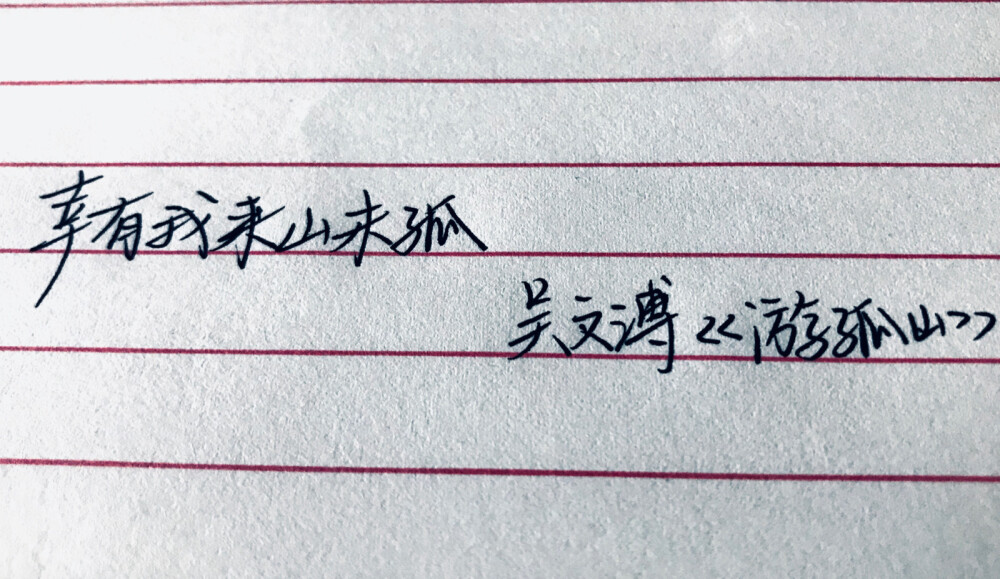 幸有我来山未孤
吴文溥《游孤山》